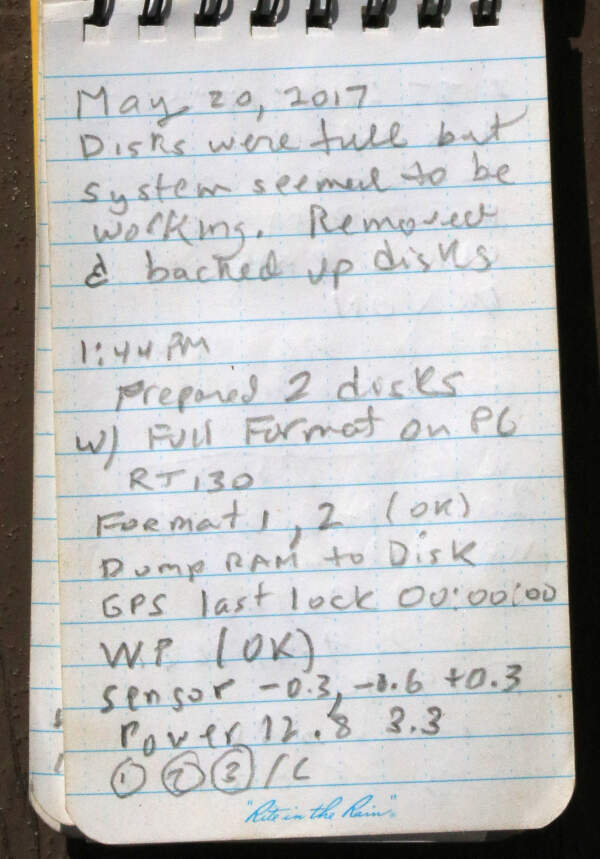 May 20, 2017
Disks were full but
system seemed to be
working. Removed
& backed up disks
1:44 PM
Prepared 2 disks
w/ Full Format on PC
RT130
Format 1, 2 (OK)
Dump RAM to Disk
GPS last lock 00:00:00
WP (OK)
sensor -0.3, -1.6 +0.3
Power 12.8 3.3
① ② ③ / C
"Rite in the Rain"